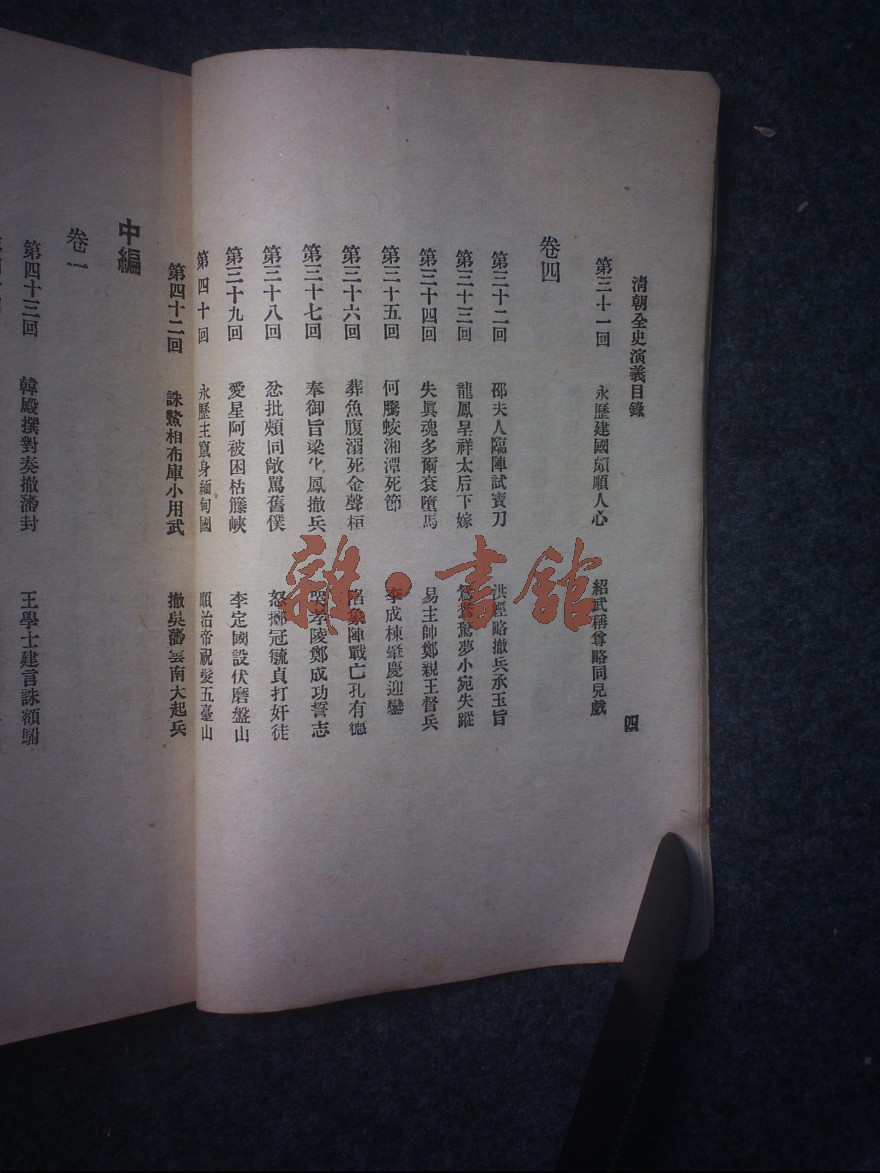 清朝全史演義目錄
四
第三十一回 永歷建國頗順人心 紹武稱尊略同兒戲
卷四
第三十二回 邵夫人臨陣試寶刀 洪經略撤兵承玉旨
第三十三回 龍鳳呈祥太后下嫁 驚夢小宛失蹤
第三十四回 失眞魂多爾袞墮馬 易主帥鄭親王督兵
第三十五回 何騰蛟湘潭死節 李成棟肇慶迎鑾
第三十六回 葬魚腹溺死金聲桓 陷象陣戰亡孔有德
第三十七回 奉御旨梁化鳳撤兵 哭孝陵鄭成功誓志
第三十八回 忿批頰同敞罵舊僕 怒擲冠毓貞打奸徒
第三十九回 愛星阿被困枯籐峽 李定國設伏磨盤山
第四十回 永歷主竄身緬甸國 順治帝祝髮五臺山
第四十二回 誅鰲相布庫小用武 撤吳藩雲南大起兵
中編
卷一
第四十三回 韓殿撰對奏撤藩封 王學士建言誅額駙
雜·書館